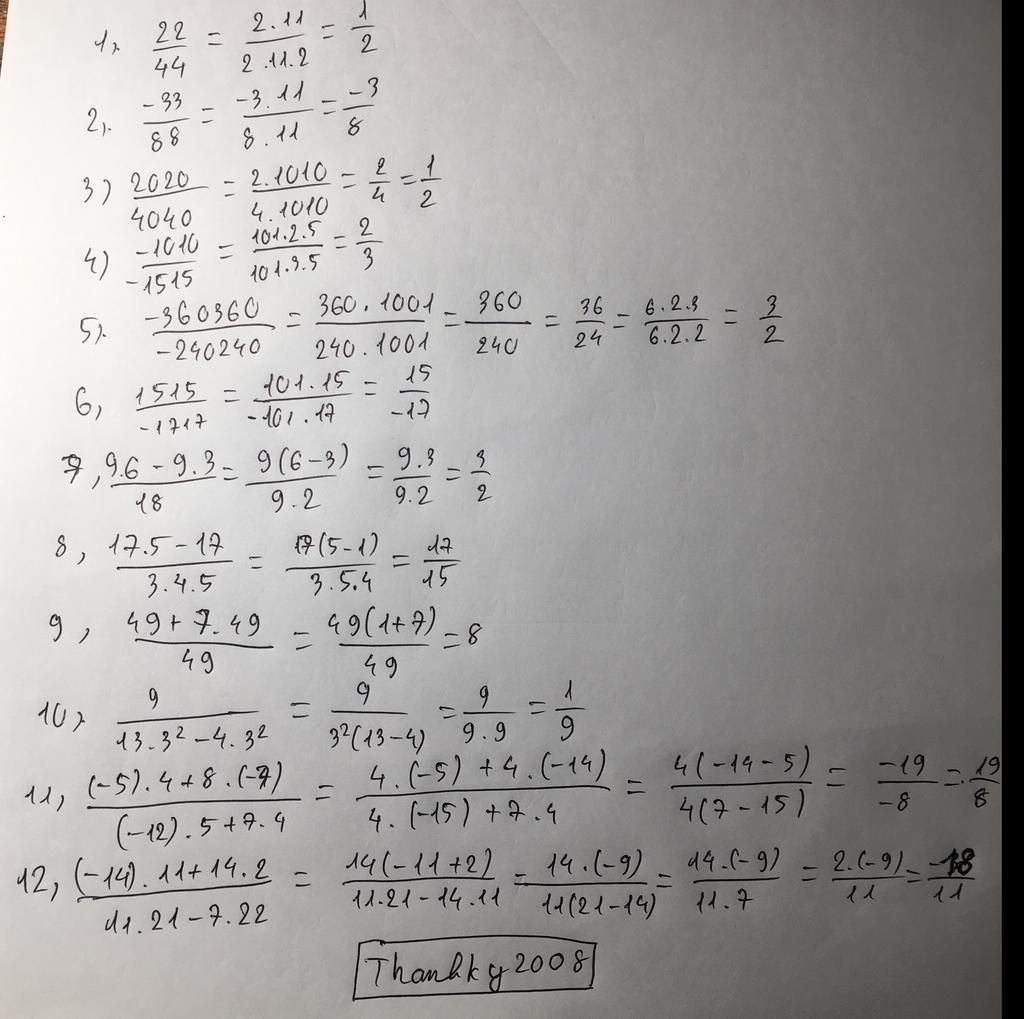 1, 22/44 = 2.11/2.11.2 = 1/2
2, -33/88 = -3.11/8.11 = -3/8
3) 2020/4040 = 2.1010/4.1010 = 2/4 = 1/2
4) -1010/-1515 = 101.2.5/101.3.5 = 2/3
5, -360360/-240240 = 360.1001/240.1001 = 360/240 = 36/24 = 6.2.3/6.2.2 = 3/2
6, 1515/-1717 = 101.15/-101.17 = 15/-17
7, 9.6-9.3/18 = 9(6-3)/9.2 = 9.3/9.2 = 3/2
8, 17.5-17/3.4.5 = 17(5-1)/3.5.4 = 17/15
9, 49+7.49/49 = 49(1+7)/49 = 8
10, 9/13.3²-4.3² = 9/3²(13-4) = 9/9.9 = 1/9
11, (-5).4+8.(-7)/(-12).5+7.4 = 4.(-5)+4.(-14)/4.(-15)+7.4 = 4(-14-5)/4(7-15) = -19/-8 = 19/8
12, (-14).11+14.2/11.21-7.22 = 14(-11+2)/11.21-14.11 = 14.(-9)/11(21-14) = 14.(-9)/11.7 = 2.(-9)/11 = -18/11
Thanhky2008